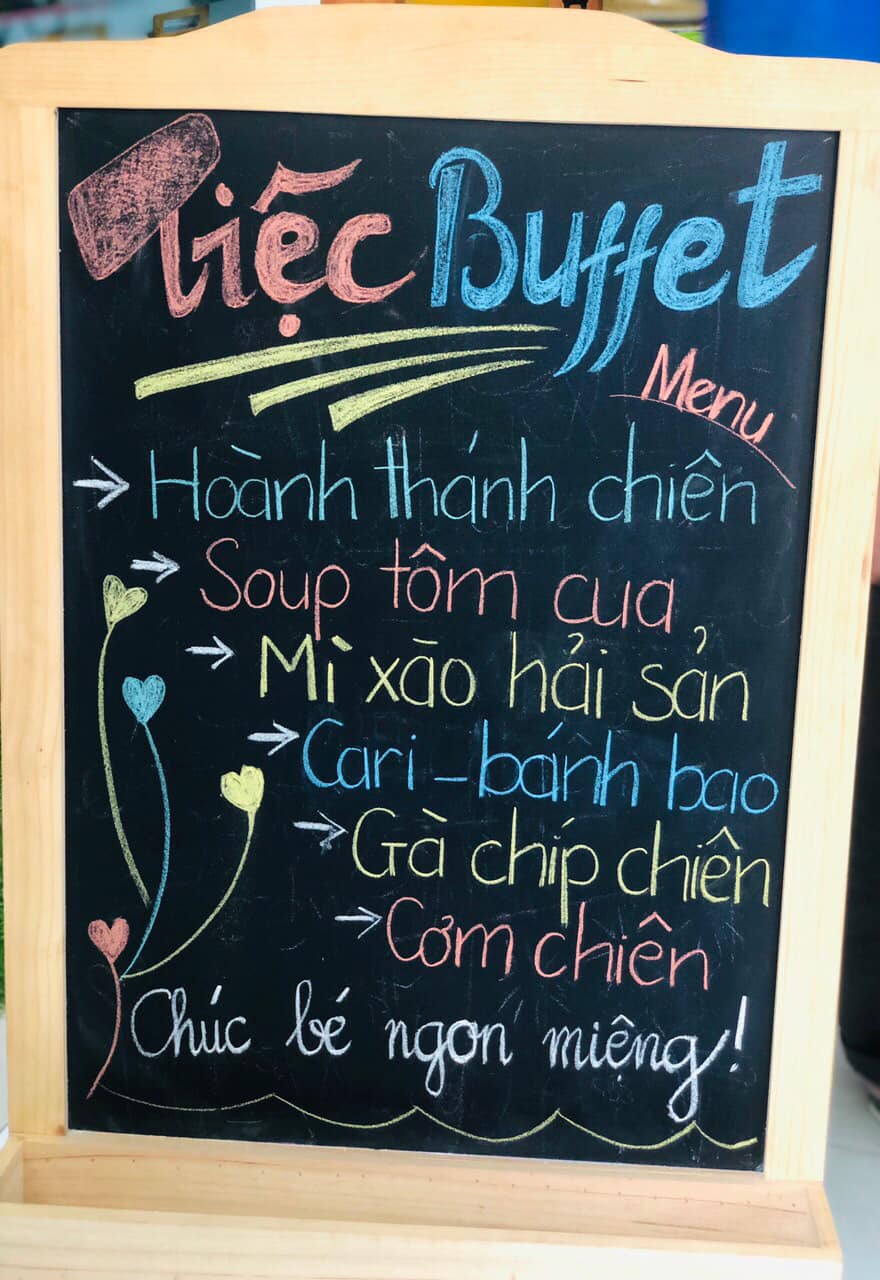 Tiệc Buffet
Menu
→ Hoành thánh chiên
→ Soup tôm cua
→ Mì xāo hải sản
→ Cari - bánh bao
→ Gà chíp chiên
→ Cơm chiên
Chúc bé ngon miệng!